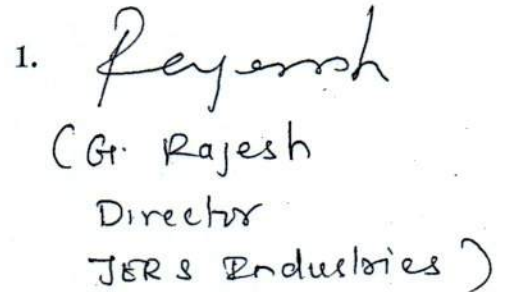 1. Rajesh
(G. Rajesh
Director
JERS Industries)